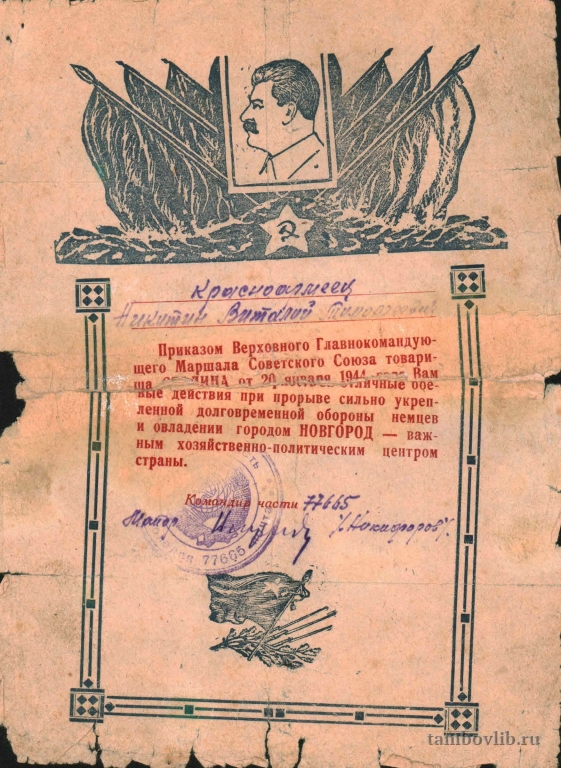 Красноармеец
Никитин Виталий Тимофеевич
Приказом Верховного Главнокомандую-
щего Маршала Советского Союза товари-
ща СТАЛИНА от 20 января 1944 года Вам
отличные бое-
вые действия при прорыве сильно укреп-
ленной долговременной обороны немцев
и овладении городом НОВГОРОД — важ-
ным хозяйственно-политическим центром
страны.
Командир части 77665
Майор /Никифоров/
77665
tambovlib.ru